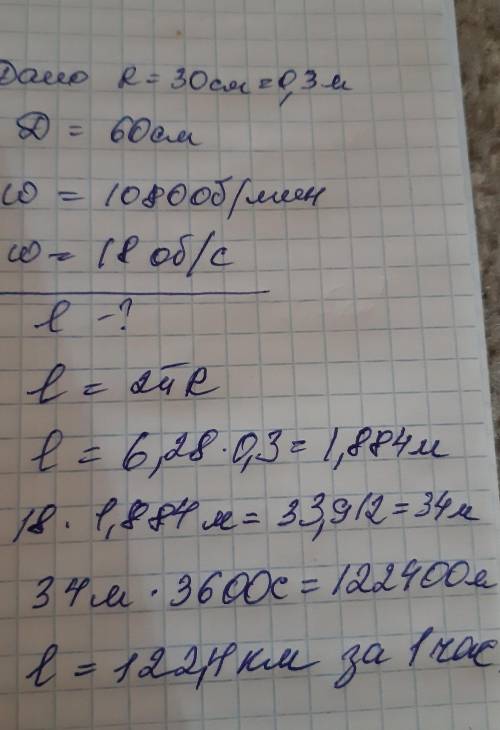 Дано R = 30см = 0,3м
D = 60см
ω = 1080об/мин
ω = 18 об/с
l - ?
l = 2πR
l = 6,28 · 0,3 = 1,884м
18 · 1,884м = 33,912 = 34м
34м · 3600с = 122400м
l = 122,4км за 1 час